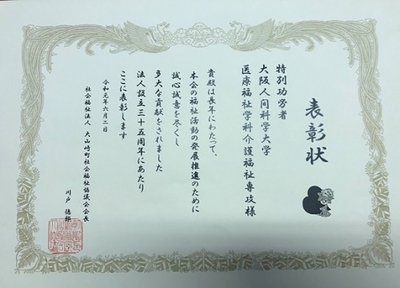 表彰状
特別功労者
大阪人间科学大学
医療福祉学科介護福祉専攻様
貴殿は長年にわたって、
本会の福祉活動の発展推進のために
誠心誠意を尽くし
多大な貢献をされました
法人設立三十五周年にあたり
ここに表彰します
令和元年六月二日
社会福祉法人 大山崎町社会福祉協議会会長